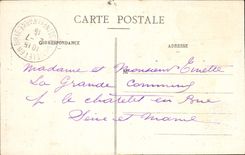 CARTE POSTALE
CORRESPONDANCE
ADRESSE
Madame et Monsieur Tinette
La Grande Commune
p le châtelet en Brie
Seine et Marne